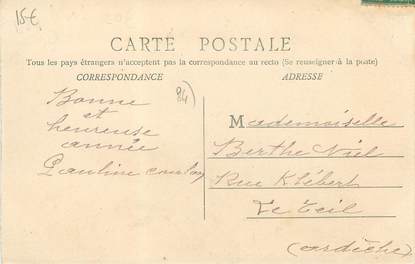 15€
CARTE POSTALE
Tous les pays étrangers n'acceptent pas la correspondance au recto (Se renseigner à la poste)
CORRESPONDANCE
ADRESSE
84)
Bonne
et
heureuse
année
Pauline
Mademoiselle
Berthe Niel
Rue Klébert
Le Teil
(ardèche)